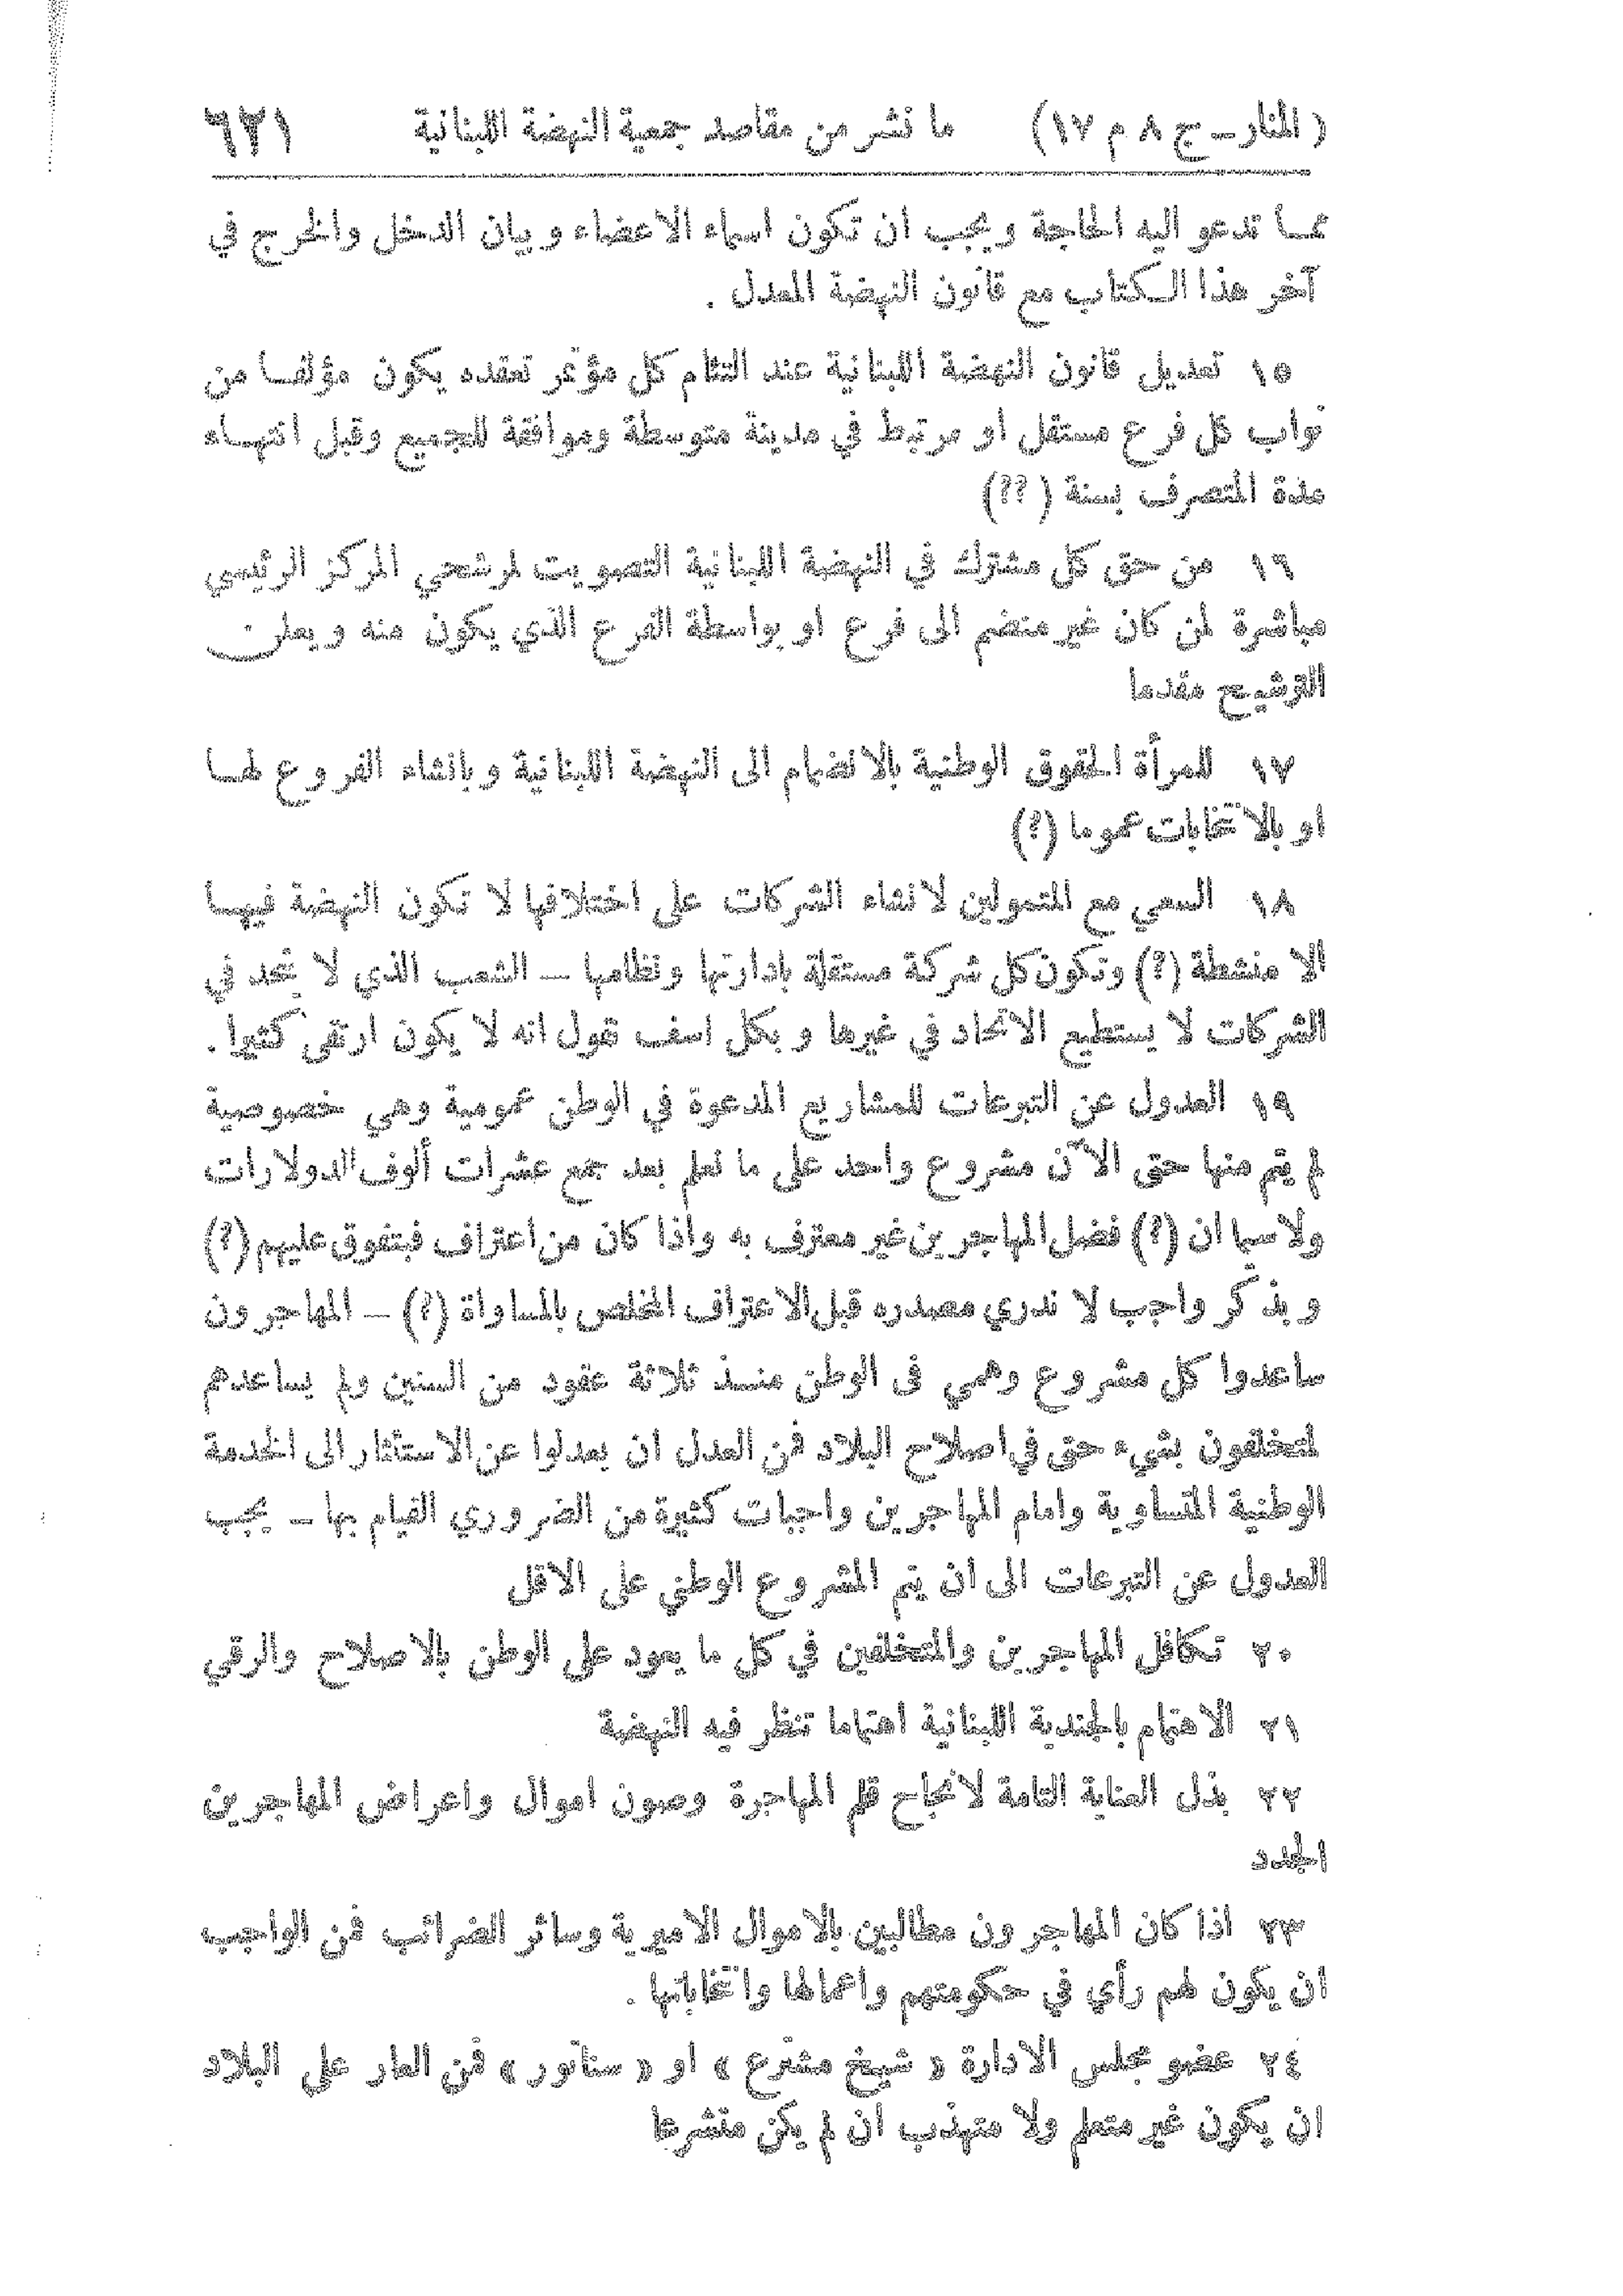 (المنار ـ ج ٨ م ١٧) ما نشر من مقاصد جمعية النهضة اللبنانية ٦٢١
مما تدعو اليه الحاجة ويجب ان تكون اسماء الاعضاء وبيان الدخل والخرج في
آخر هذا الكتاب مع قانون النهضة المعدل .
١٥ تعديل قانون النهضة اللبنانية عند التئام كل مؤتمر تعقده يكون مؤلفا من
نواب كل فرع مستقل او مرتبط في مدينة متوسطة وموافقة للجميع وقبل انتهاء
مدة المتصرف بسنة (؟؟)
١٦ من حق كل مشترك في النهضة اللبنانية التصويت لمرشحي المركز الرئيسي
مباشرة لمن كان غير منضم الى فرع او بواسطة الفرع الذي يكون منه ويعلن
الترشيح مقدما
١٧ للمرأة الحقوق الوطنية بالانضمام الى النهضة اللبنانية وبانشاء الفروع لها
او بالانتخابات عموما (؟)
١٨ السعي مع المتمولين لانشاء الشركات على اختلافها لا تكون النهضة فيها
الا منشطة (؟) وتكون كل شركة مستقلة بادارتها ونظامها — الشعب الذي لا يتحد في
الشركات لا يستطيع الاتحاد في غيرها وبكل اسف نقول انه لا يكون ارتقى كثيرا .
١٩ العدول عن التبرعات للمشاريع المدعوة في الوطن عمومية وهي خصوصية
لم يتم منها حتى الآن مشروع واحد على ما نعلم بعد جمع عشرات ألوف الدولارات
ولا سيما ان (؟) فضل المهاجرين غير معترف به واذا كان من اعتراف فبتفوق عليهم (؟)
وبذكر واجب لا ندري مصدره قبل الاعتراف المخلص بالمساواة (؟) — المهاجرون
ساعدوا كل مشروع وهمي في الوطن منذ ثلاثة عقود من السنين ولم يساعدهم
لمتخلفون بشيء حتى في اصلاح البلاد فمن العدل ان يعدلوا عن الاستئثار الى الخدمة
الوطنية المتساوية وامام المهاجرين واجبات كثيرة من الضروري القيام بها — يجب
العدول عن التبرعات الى ان يتم المشروع الوطني على الاقل
٢٠ تكافل المهاجرين والمتخلفين في كل ما يعود على الوطن بالاصلاح والرقي
٢١ الاهتمام بالجندية اللبنانية اهتماما تنظر فيه النهضة
٢٢ بذل العناية التامة لانجاح قلم المهاجرة وصون اموال واعراض المهاجرين
الجدد
٢٣ اذا كان المهاجرون مطالبين بالاموال الاميرية وسائر الضرائب فمن الواجب
ان يكون لهم رأي في حكومتهم واعمالها وانتخاباتها .
٢٤ عضو مجلس الادارة « شيخ مشترع » او « سناتور » فمن العار على البلاد
ان يكون غير متعلم ولا متهذب ان لم يكن متشرعا